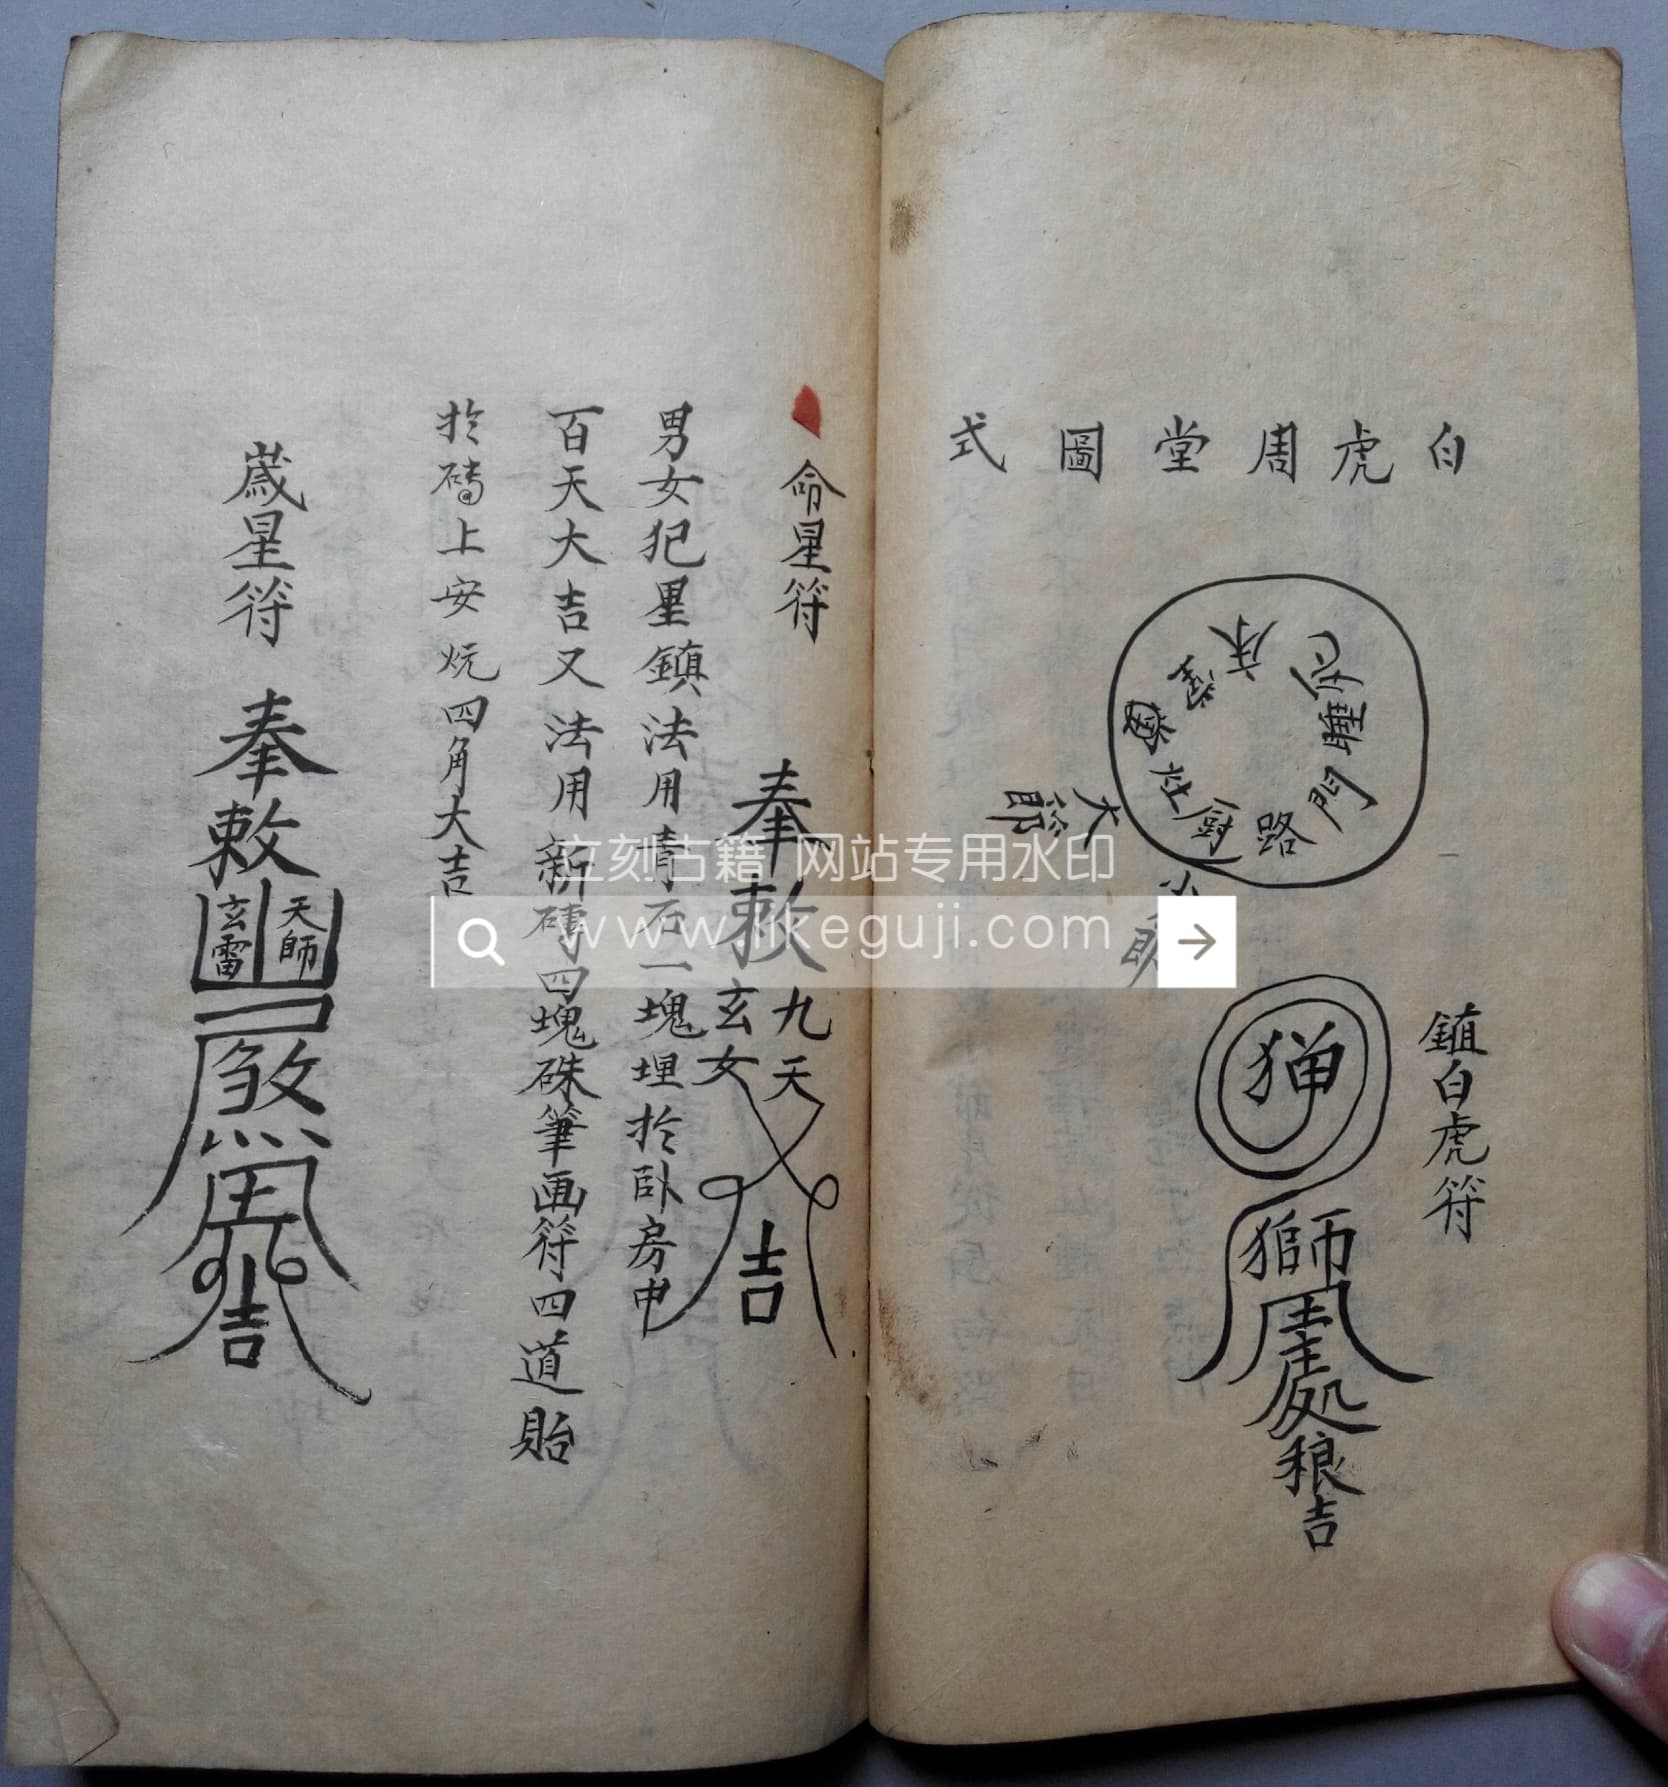 白虎周堂圖式
床
門
路
大
鎮白虎符
獅
狼
吉
命星符
奉敕
九天
玄女
吉
男女犯星鎮法用青石一塊埋於卧房中
百天大吉又法用新磚四塊硃筆画符四道貽
於磚上安炕四角大吉
歲星符
奉敕
天師
玄雷
煞
吉
立刻古籍 网站专用水印
www.likeguji.com